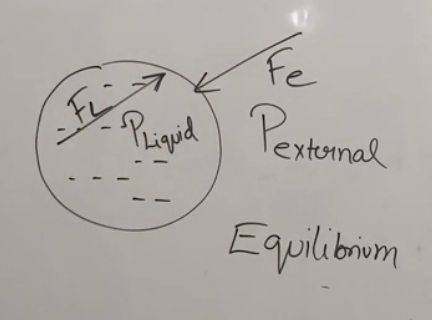 Fe
FL
PLiquid
Pexternal
Equilibrium